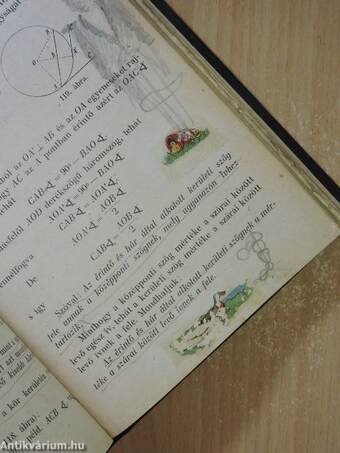 119. ábra.
ból az OA' ⊥ AB és az OA egyeneseket raj-
AC, az A pontban érintő azért az OAC∢
tehát
CAB∢ = 90° — BAO∢.
AOD derékszögű háromszög, tehát
AOA'∢ = 90° — BAO∢.
CAB∢ = AOA'∢
De
AOA'∢ = AOB∢/2
s így
CAB∢ = AOB∢/2
Szóval: Az érintő és húr által alkotott kerületi szög
fele annak a középponti szögnek, mely ugyanazon ívhez
tartozik.
Minthogy a középponti szög mértéke a szárai között
levő egész ív, tehát a kerületi szög mértéke a szárai között
levő ívnek a fele. Mondhatjuk:
Az érintő és húr által alkotott kerületi szögnek a mér-
téke a szárai között levő ívnek a fele.
a kör kerületén
ábra):
ACB ∢
Antikvárium.hu